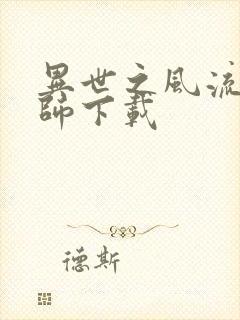 異世之風流
師下載
德斯